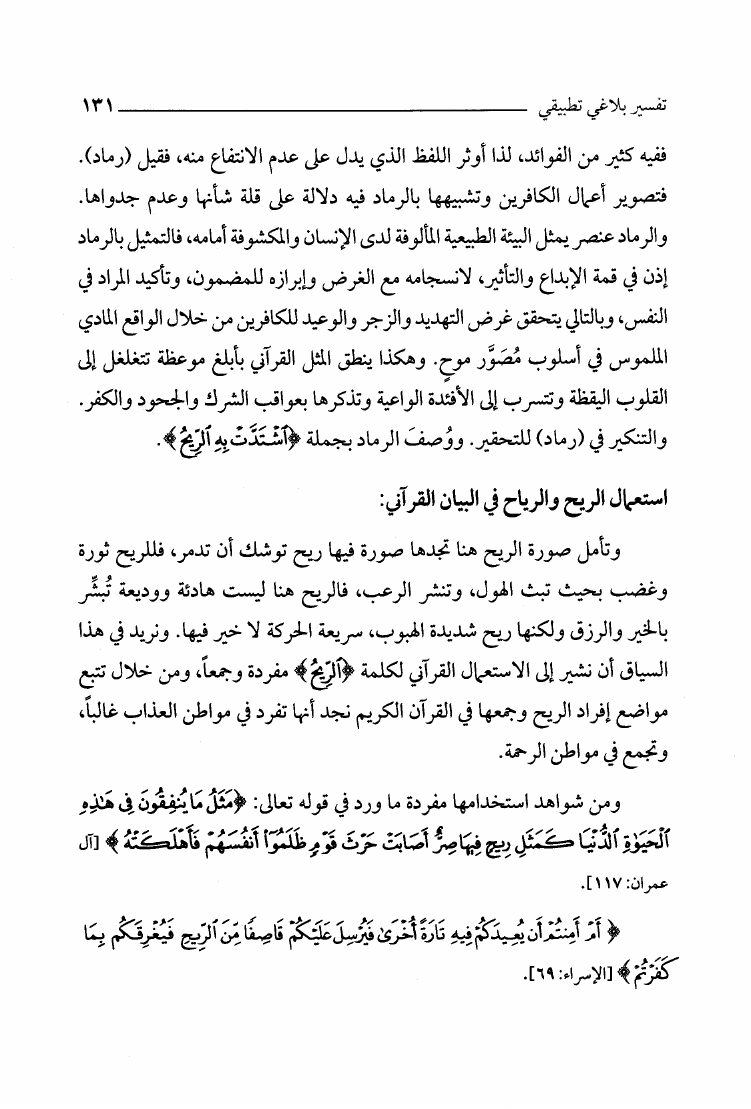 تفسير بلاغي تطبيقي ١٣١
ففيه كثير من الفوائد، لذا أوثر اللفظ الذي يدل على عدم الانتفاع منه، فقيل (رماد).
فتصوير أعمال الكافرين وتشبيهها بالرماد فيه دلالة على قلة شأنها وعدم جدواها.
والرماد عنصر يمثل البيئة الطبيعية المألوفة لدى الإنسان والمكشوفة أمامه، فالتمثيل بالرماد
إذن في قمة الإبداع والتأثير، لانسجامه مع الغرض وإبرازه للمضمون، وتأكيد المراد في
النفس، وبالتالي يتحقق غرض التهديد والزجر والوعيد للكافرين من خلال الواقع المادي
الملموس في أسلوب مُصَوَّر موحٍ. وهكذا ينطق المثل القرآني بأبلغ موعظة تتغلغل إلى
القلوب اليقظة وتتسرب إلى الأفئدة الواعية وتذكرها بعواقب الشرك والجحود والكفر.
والتنكير في (رماد) للتحقير. ووُصفَ الرماد بجملة ﴿ٱشۡتَدَّتۡ بِهِ ٱلرِّيحُ﴾.
استعمال الريح والرياح في البيان القرآني:
وتأمل صورة الريح هنا تجدها صورة فيها ريح توشك أن تدمر، فللريح ثورة
وغضب بحيث تبث الهول، وتنشر الرعب، فالريح هنا ليست هادئة ووديعة تُبشِّر
بالخير والرزق ولكنها ريح شديدة الهبوب، سريعة الحركة لا خير فيها. ونريد في هذا
السياق أن نشير إلى الاستعمال القرآني لكلمة ﴿ٱلرِّيحُ﴾ مفردة وجمعاً، ومن خلال تتبع
مواضع إفراد الريح وجمعها في القرآن الكريم نجد أنها تفرد في مواطن العذاب غالباً،
وتجمع في مواطن الرحمة.
ومن شواهد استخدامها مفردة ما ورد في قوله تعالى: ﴿مَثَلُ مَا يُنفِقُونَ فِي هَٰذِهِ
ٱلۡحَيَوٰةِ ٱلدُّنۡيَا كَمَثَلِ رِيحٖ فِيهَا صِرٌّ أَصَابَتۡ حَرۡثَ قَوۡمٖ ظَلَمُوٓاْ أَنفُسَهُمۡ فَأَهۡلَكَتۡهُ﴾ [آل
عمران: ١١٧].
﴿أَمۡ أَمِنتُمۡ أَن يُعِيدَكُمۡ فِيهِ تَارَةً أُخۡرَىٰ فَيُرۡسِلَ عَلَيۡكُمۡ قَاصِفٗا مِّنَ ٱلرِّيحِ فَيُغۡرِقَكُم بِمَا
كَفَرۡتُمۡ﴾ [الإسراء: ٦٩].